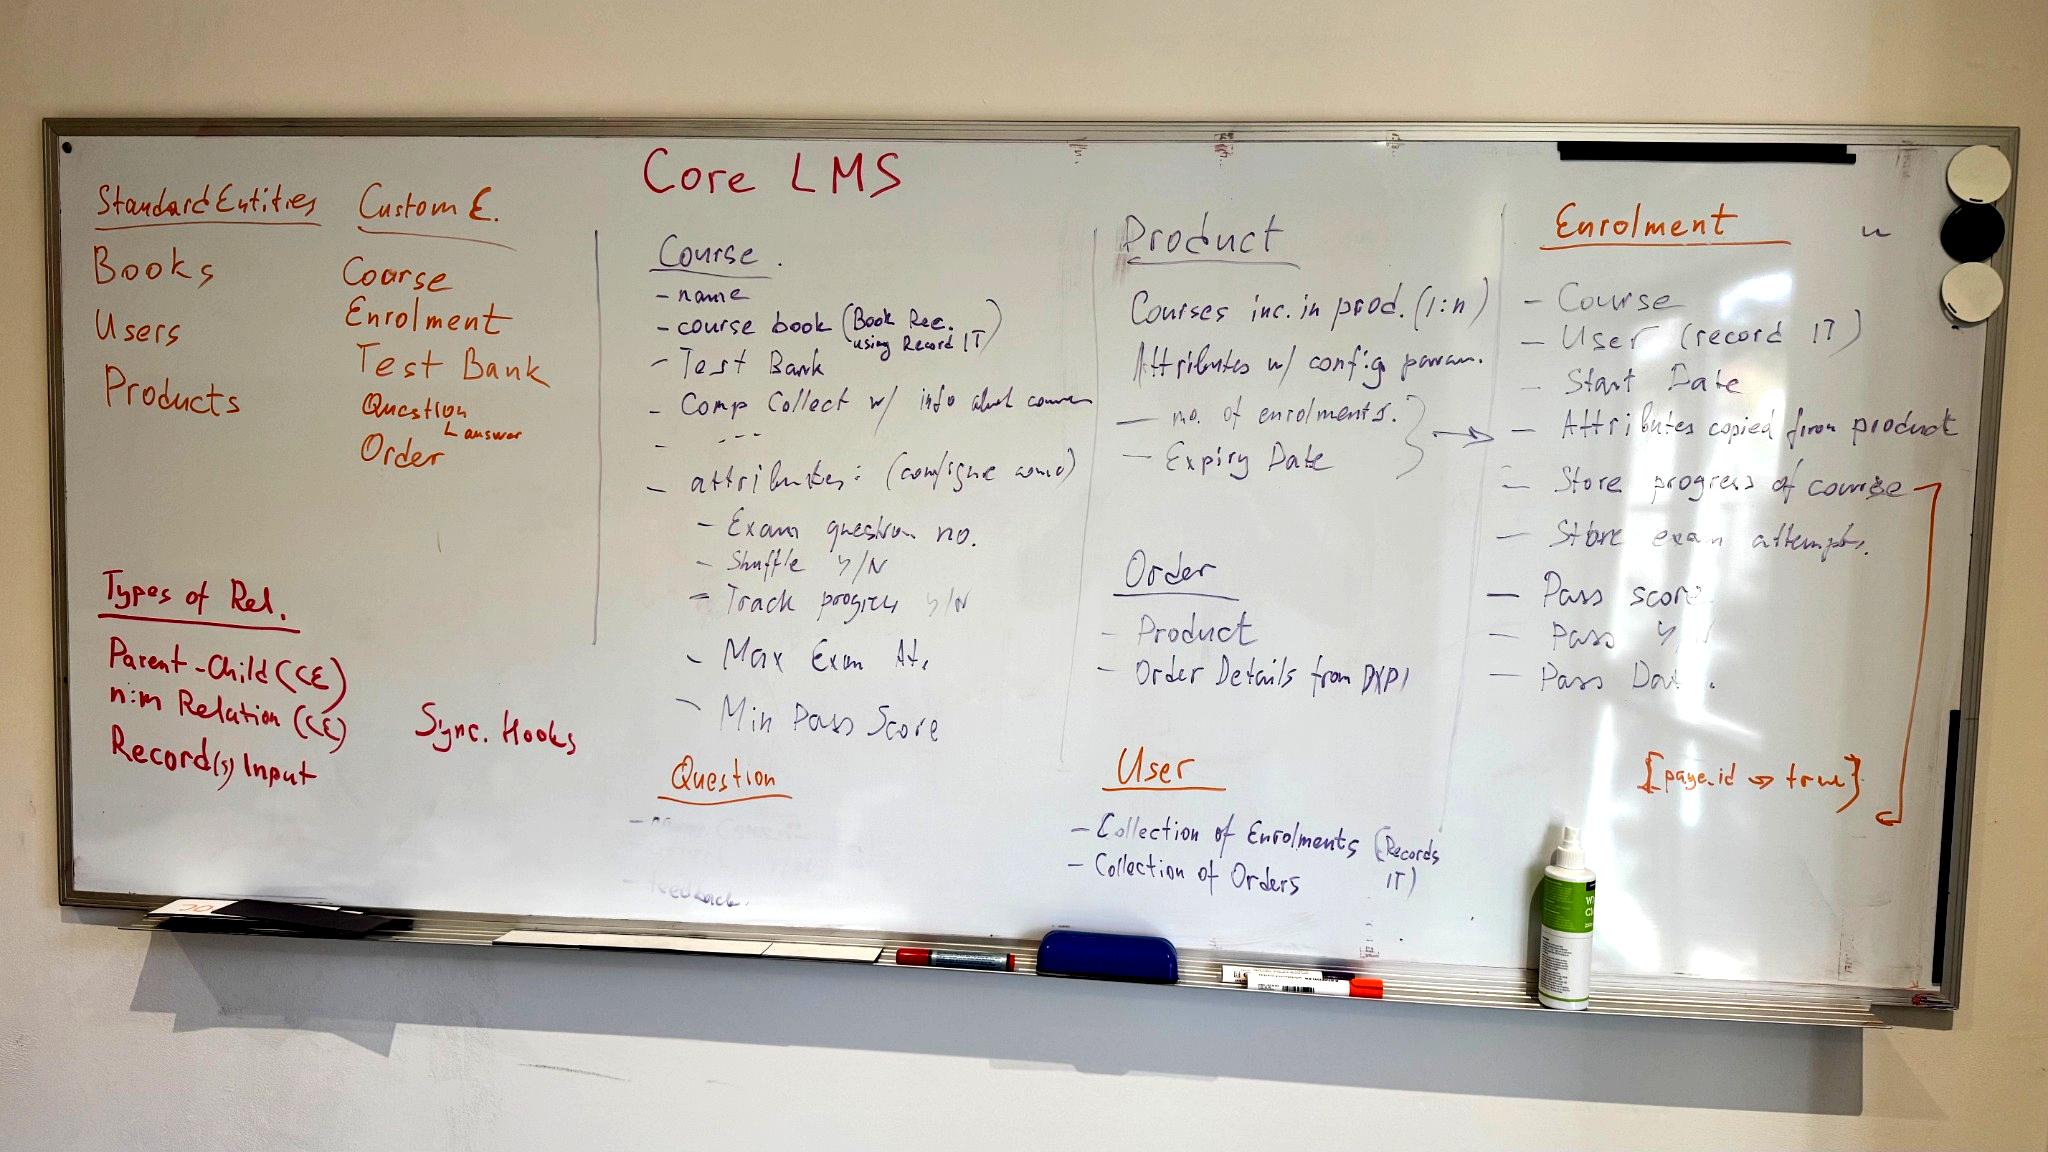 Core LMS
Standard Entities
Books
Users
Products
Custom E.
Course
Enrolment
Test Bank
Question
answer
Order
Types of Rel.
Parent-Child (CE)
n:m Relation (CE)
Record(s) Input
Sync. Hooks
Course
- name
- course book (Book Rec.
using Record IT)
- Test Bank
- Comp Collect w/ info about
- ---
- attributes: (configure
- Exam question no.
- Shuffle Y/N
- Track progress Y/N
- Max Exam At.
- Min Pass Score
Question
- feedback.
Product
Courses inc. in prod. (1:n)
Attributes w/ config param.
- no. of enrolments.
- Expiry Date
Order
- Product
- Order Details from DXP
User
- Collection of Enrolments (Records
IT)
- Collection of Orders
Enrolment
- Course
- User (record IT)
- Start Date
- Attributes copied from product
- Store progress of course
- Store exam attempts.
- Pass score
- Pass Y/N
- Pass Dat
[page_id => true]